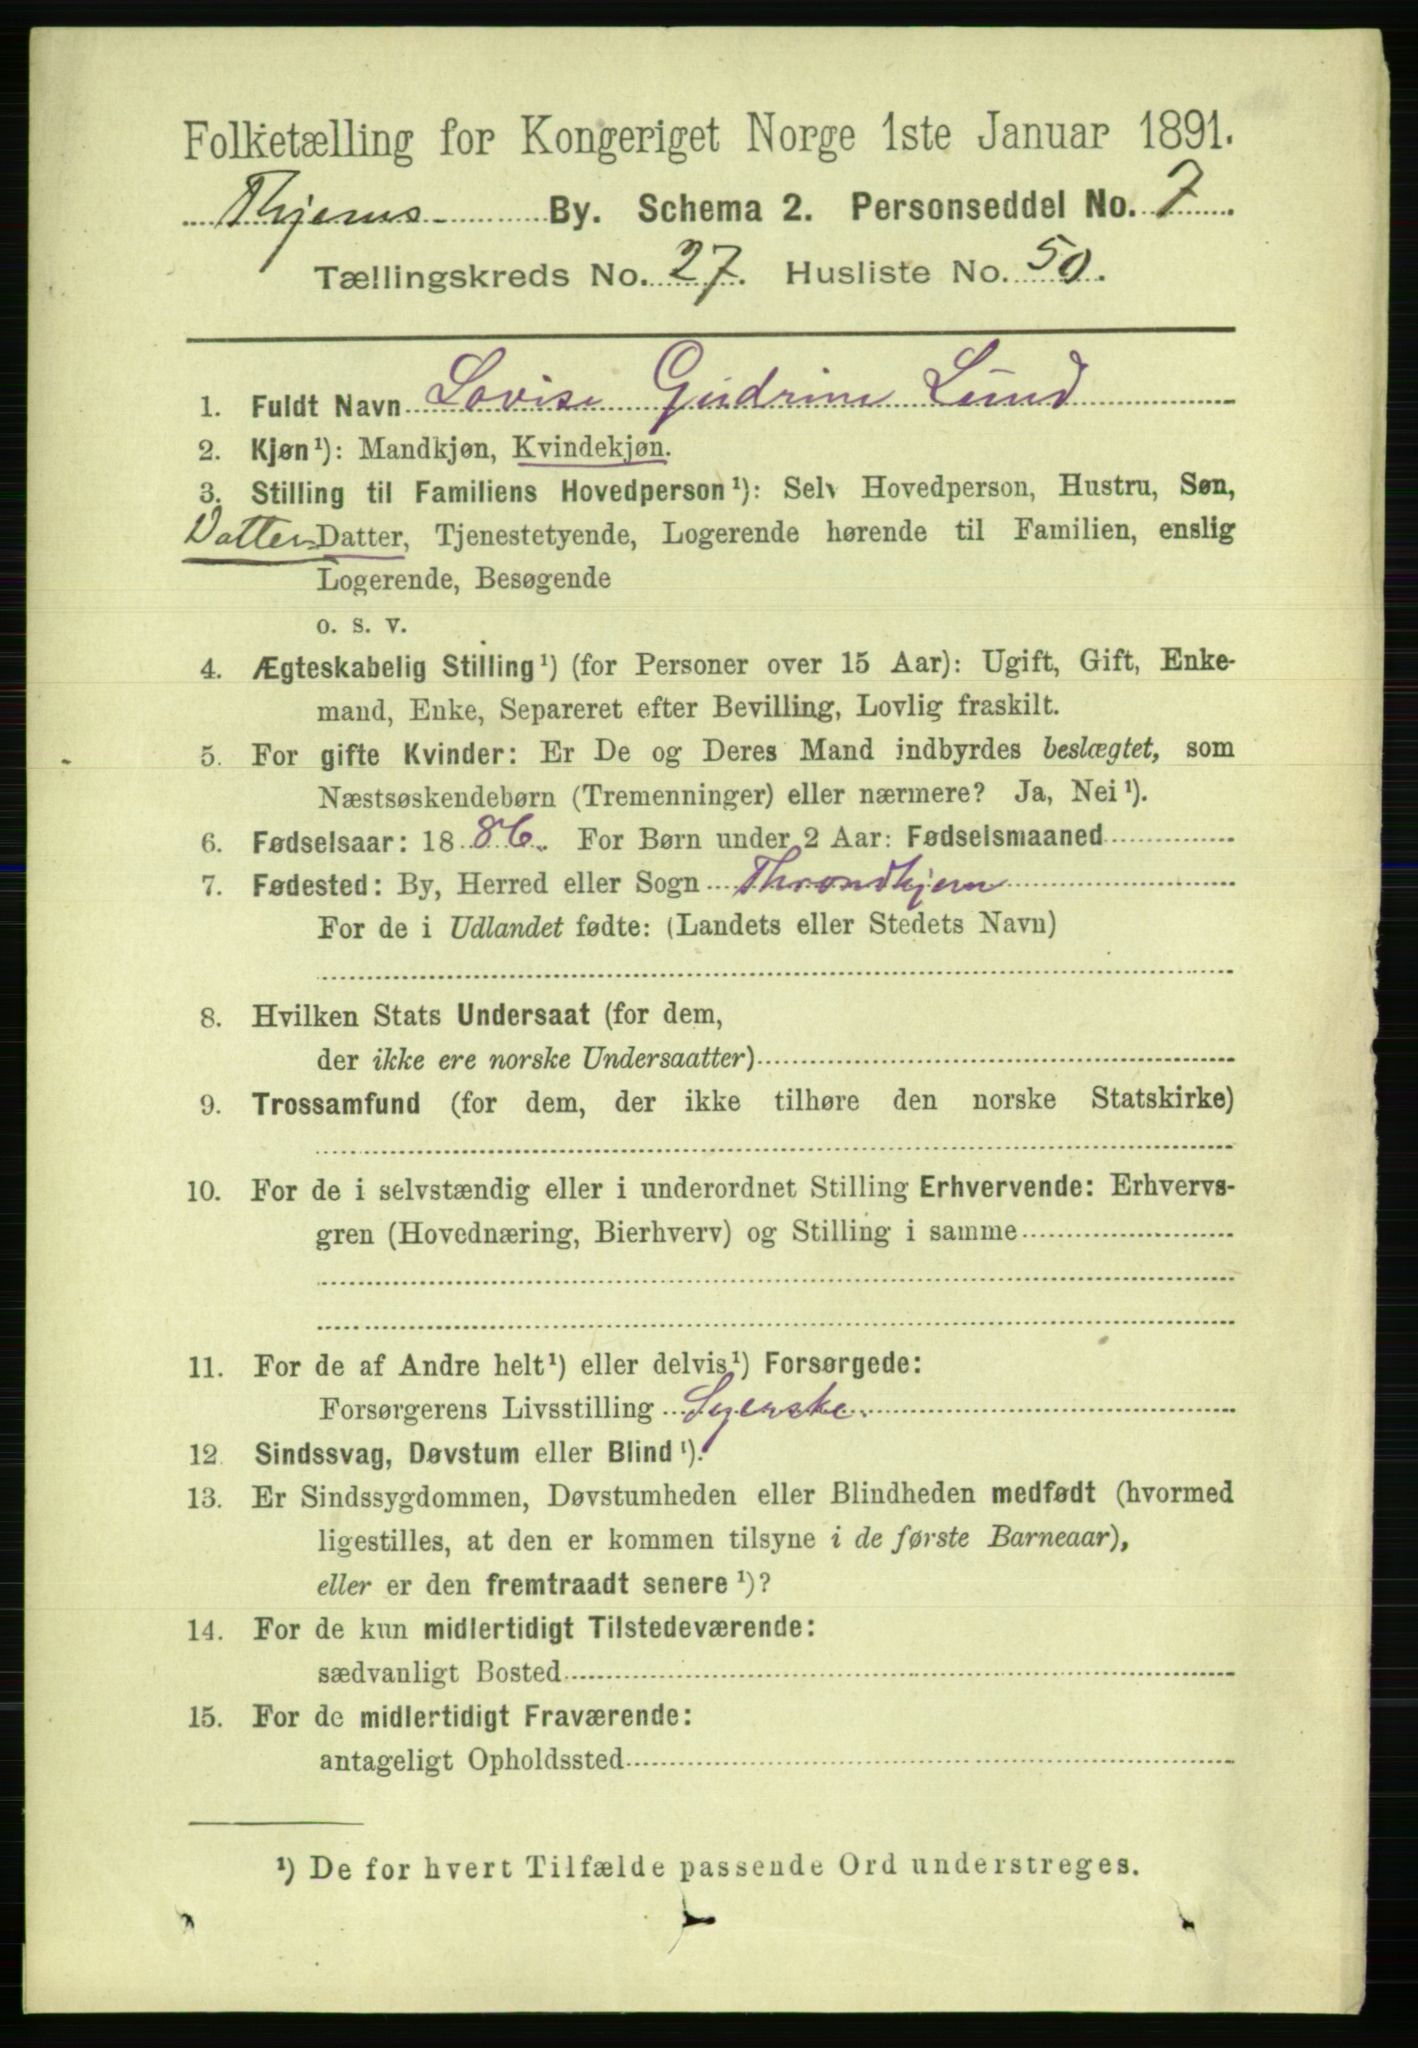 Folketælling for Kongeriget Norge 1ste Januar 1891.
Thjems By. Schema 2. Personseddel No. 7
Tællingskreds No. 27. Husliste No. 50.
1. Fuldt Navn Lovise Gudrine Lund
2. Kjøn¹): Mandkjøn, Kvindekjøn.
3. Stilling til Familiens Hovedperson¹): Selv Hovedperson, Hustru, Søn,
Datter Datter, Tjenestetyende, Logerende hørende til Familien, enslig
Logerende, Besøgende
o. s. v.
4. Ægteskabelig Stilling¹) (for Personer over 15 Aar): Ugift, Gift, Enke-
mand, Enke, Separeret efter Bevilling, Lovlig fraskilt.
5. For gifte Kvinder: Er De og Deres Mand indbyrdes beslægtet, som
Næstsøskendebørn (Tremenninger) eller nærmere? Ja, Nei¹).
6. Fødselsaar: 1886. For Børn under 2 Aar: Fødselsmaaned
7. Fødested: By, Herred eller Sogn Throndhjem
For de i Udlandet fødte: (Landets eller Stedets Navn)
8. Hvilken Stats Undersaat (for dem,
der ikke ere norske Undersaatter)
9. Trossamfund (for dem, der ikke tilhøre den norske Statskirke)
10. For de i selvstændig eller i underordnet Stilling Erhvervende: Erhvervs-
gren (Hovednæring, Bierhverv) og Stilling i samme
11. For de af Andre helt¹) eller delvis¹) Forsørgede:
Forsørgerens Livsstilling Syerske.
12. Sindssvag, Døvstum eller Blind¹).
13. Er Sindssygdommen, Døvstumheden eller Blindheden medfødt (hvormed
ligestilles, at den er kommen tilsyne i de første Barneaar),
eller er den fremtraadt senere¹)?
14. For de kun midlertidigt Tilstedeværende:
sædvanligt Bosted
15. For de midlertidigt Fraværende:
antageligt Opholdssted
¹) De for hvert Tilfælde passende Ord understreges.